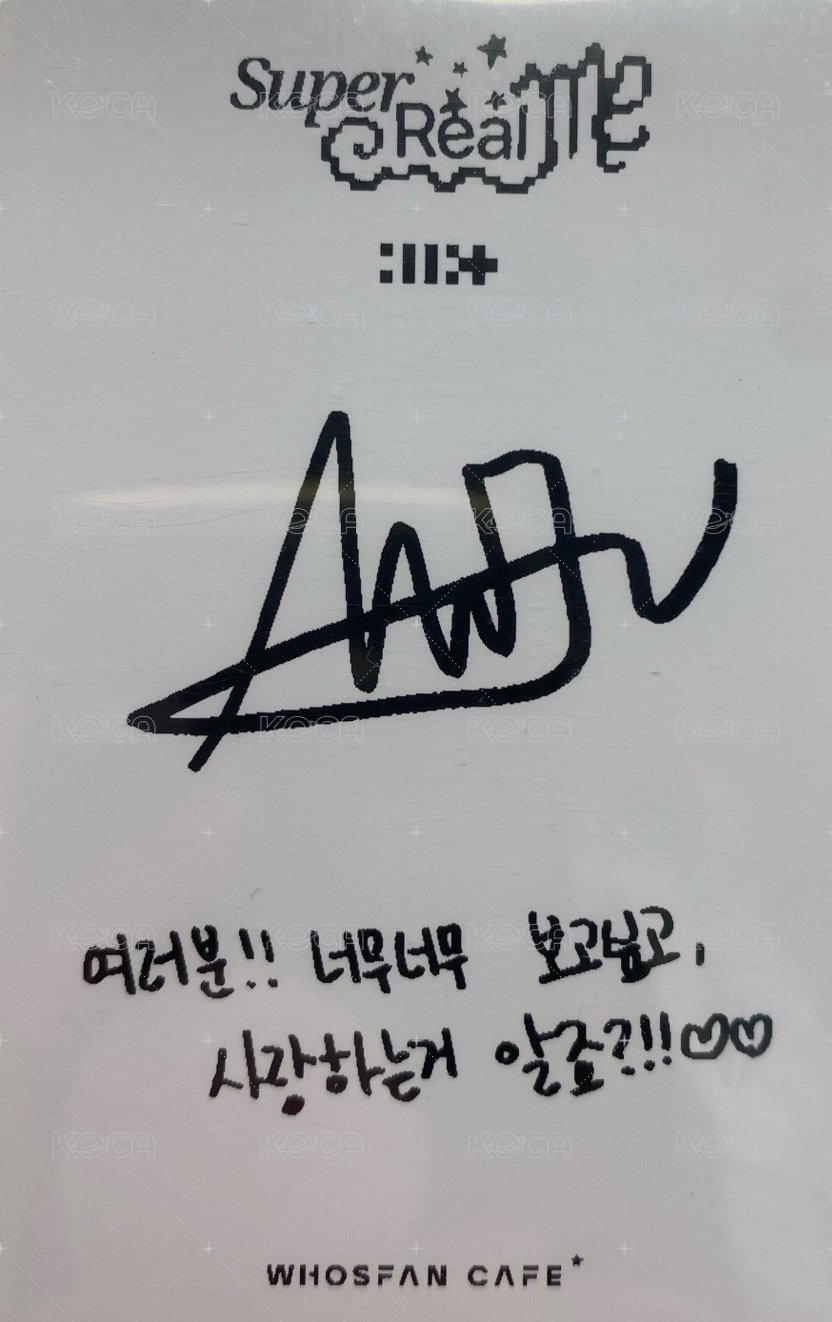 Super
Real
ME
여러분!! 너무너무 보고싶고,
사랑하는거 알죠?!!♡♡
WHOSFAN CAFE*